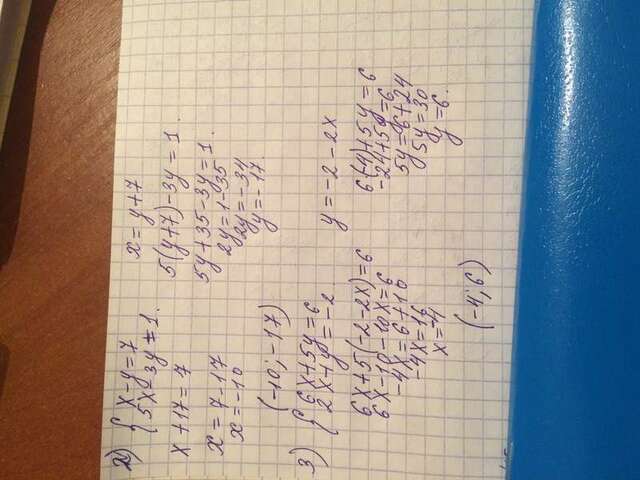 2) { x-y=7
5x-3y=1.
x+17=7
x=7-17
x=-10
(-10;-17)
x=y+7
5(y+7)-3y=1.
5y+35-3y=1.
2y=1-35
2y=-34
y=-17
3) { 6x+5y=6
2x+y=-2
6x+5(-2-2x)=6
6x-10-10x=6
-4x=6+10
-4x=16
x=-4
(-4;6)
y=-2-2x
6(-4)+5y=6
-24+5y=6
5y=6+24
5y=30
y=6.